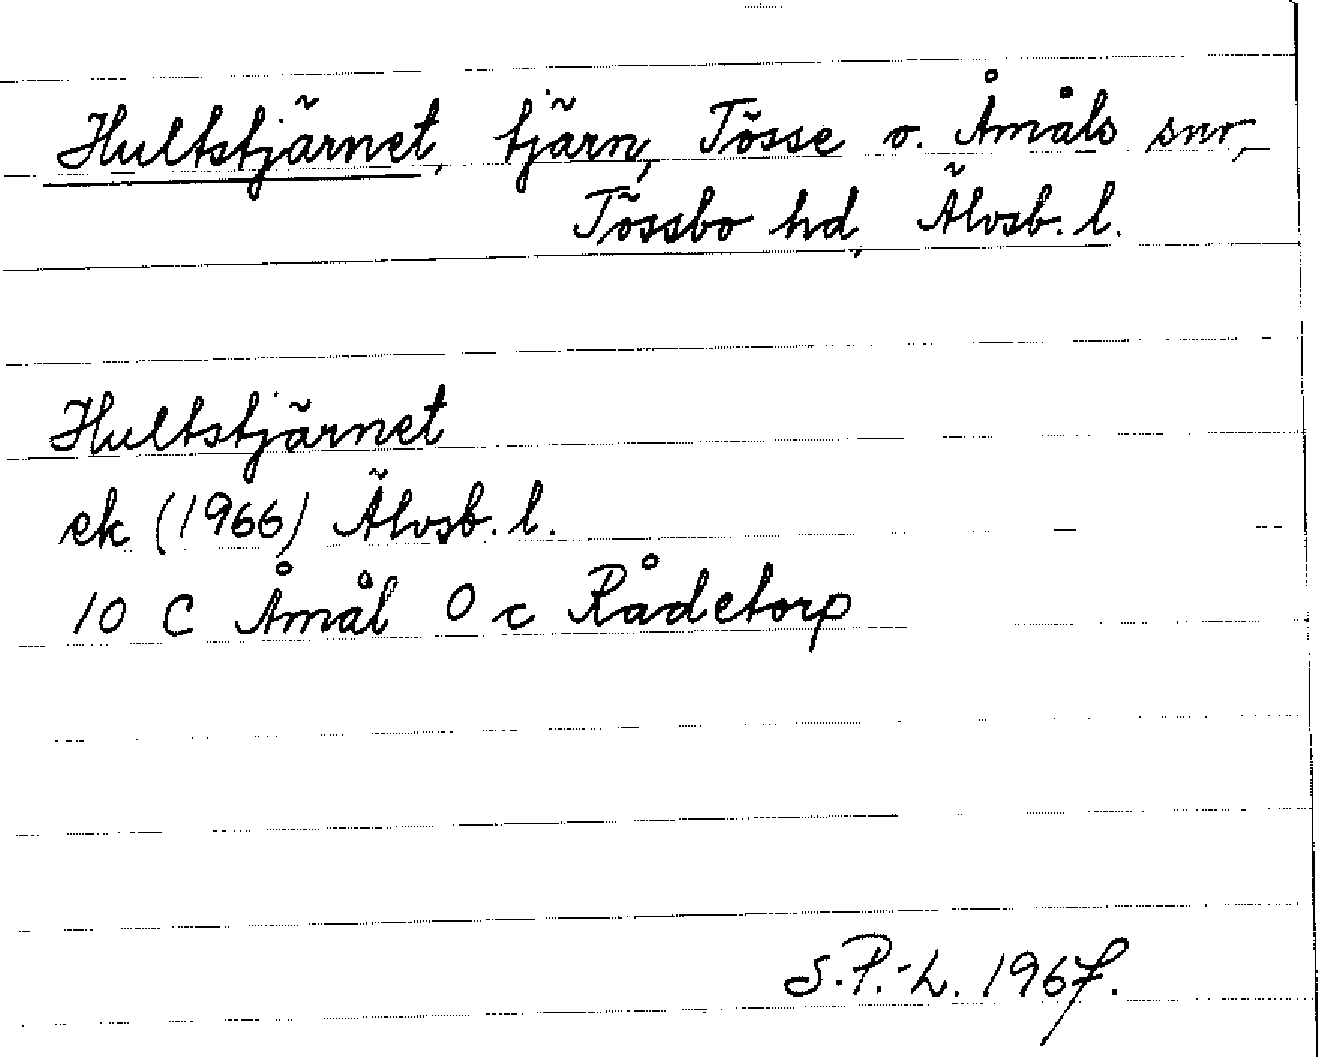 Hultstjärnet, tjärn, Tösse o. Åmåls snr,
Tössbo hd, Älvsb. l.
Hultstjärnet
ek (1966) Älvsb. l.
10 C Åmål 0 c Rådetorp
S.P.-L. 1967.